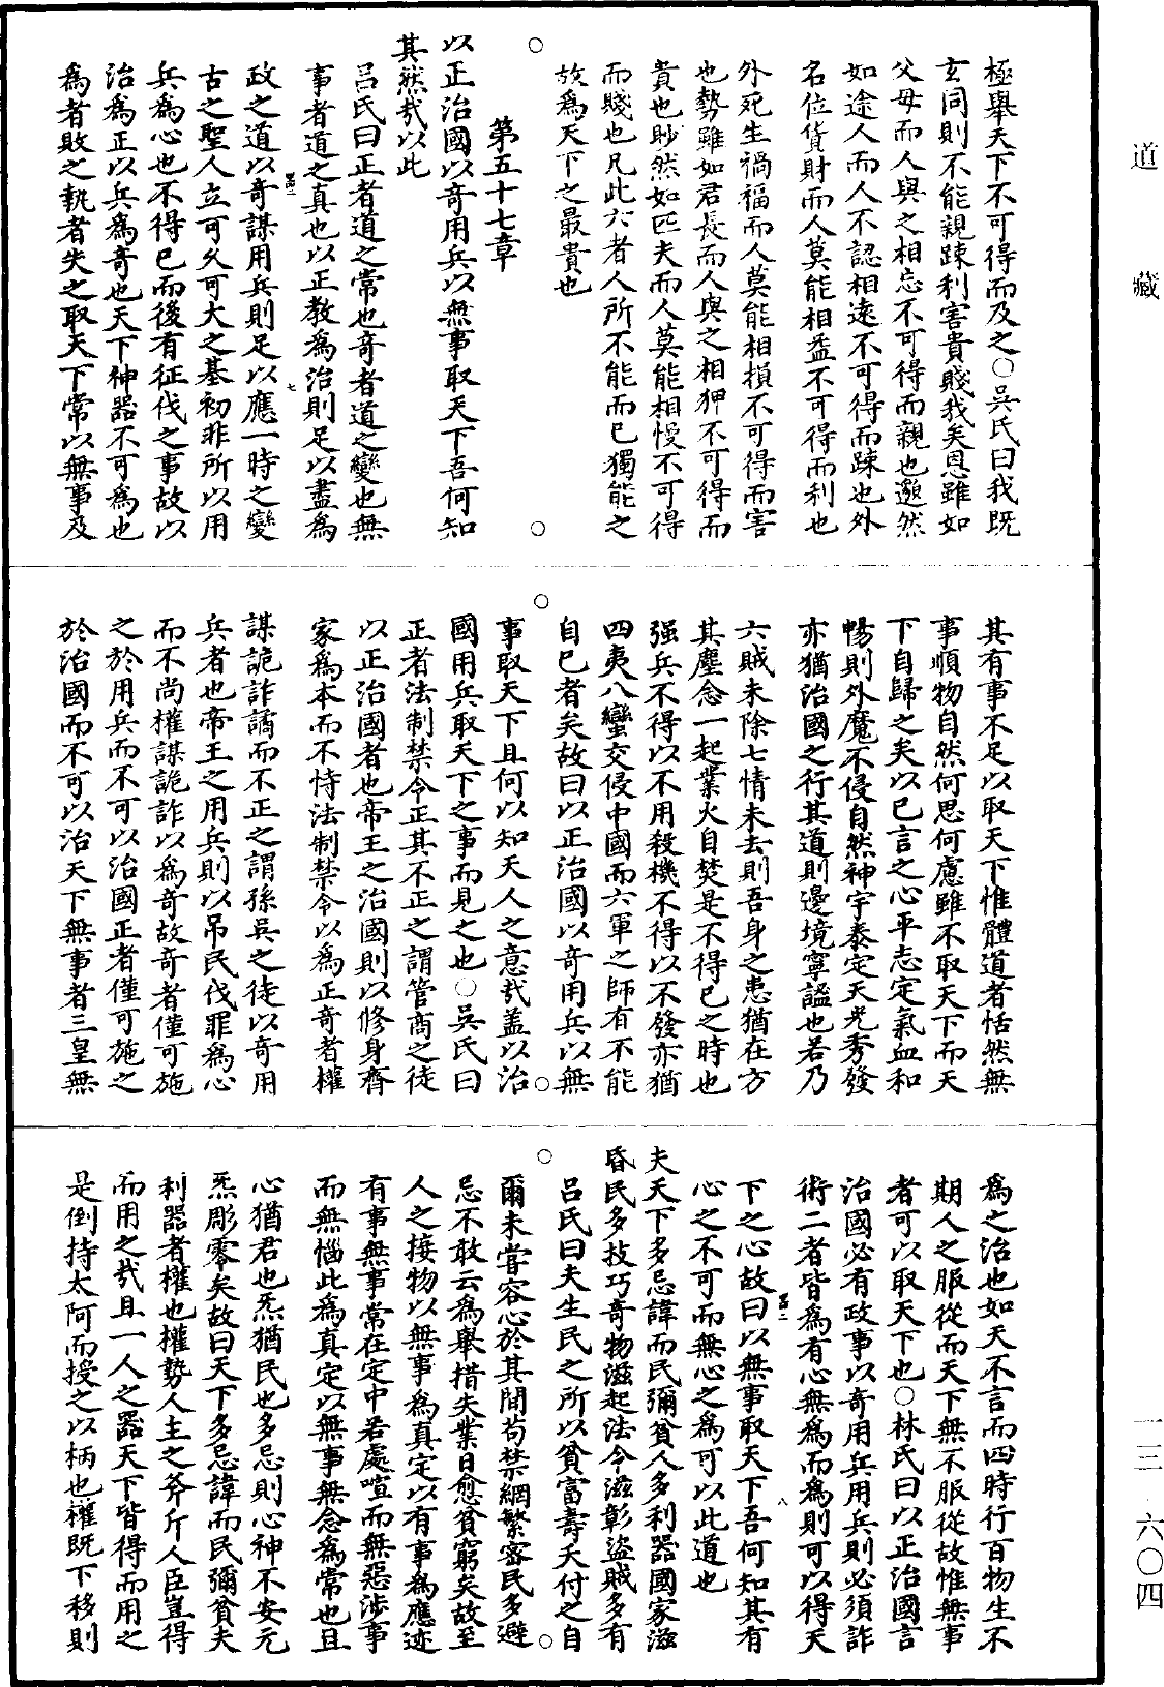 道藏
一三　六〇四
極舉天下不可得而及之〇吳氏曰我既
玄同則不能親踈利害貴賤我矣恩雖如
父母而人與之相忘不可得而親也邈然
如途人而人不認相遠不可得而踈也外
名位貨財而人莫能相益不可得而利也
外死生禍福而人莫能相損不可得而害
也勢雖如君長而人與之相狎不可得而
貴也眇然如匹夫而人莫能相慢不可得
而賤也凡此六者人所不能而已獨能之
故爲天下之最貴也
第五十七章
以正治國以奇用兵以無事取天下吾何知
其然哉以此
呂氏曰正者道之常也奇者道之變也無
事者道之真也以正教爲治則足以盡爲
政之道以奇謀用兵則足以應一時之變
古之聖人立可久可大之基初非所以用
兵爲心也不得已而後有征伐之事故以
治爲正以兵爲奇也天下神器不可爲也
爲者敗之執者失之取天下常以無事及
其有事不足以取天下惟體道者恬然無
事順物自然何思何慮雖不取天下而天
下自歸之矣以已言之心平志定氣血和
暢則外魔不侵自然神宇泰定天光秀發
亦猶治國之行其道則邊境寧謐也若乃
六賊未除七情未去則吾身之患猶在方
其塵念一起業火自焚是不得已之時也
强兵不得以不用殺機不得以不發亦猶
四夷八蠻交侵中國而六軍之師有不能
自已者矣故曰以正治國以奇用兵以無
事取天下且何以知天人之意哉盖以治
國用兵取天下之事而見之也〇吳氏曰
正者法制禁令正其不正之謂管商之徒
以正治國者也帝王之治國則以修身齊
家爲本而不恃法制禁令以爲正奇者權
謀詭詐譎而不正之謂孫吳之徒以奇用
兵者也帝王之用兵則以吊民伐罪爲心
而不尚權謀詭詐以爲奇故奇者僅可施
之於用兵而不可以治國正者僅可施之
於治國而不可以治天下無事者三皇無
爲之治也如天不言而四時行百物生不
期人之服從而天下無不服從故惟無事
者可以取天下也〇林氏曰以正治國言
治國必有政事以奇用兵用兵則必須詐
術二者皆爲有心無爲而爲則可以得天
下之心故曰以無事取天下吾何知其有
心之不可而無心之爲可以此道也
夫天下多忌諱而民彌貧人多利器國家滋
昏民多技巧奇物滋起法令滋彰盜賊多有
呂氏曰夫生民之所以貧富壽夭付之自
爾未嘗容心於其間苟禁網繁密民多避
忌不敢云爲舉措失業日愈貧窮矣故至
人之接物以無事爲真定以有事爲應迹
有事無事常在定中若處喧而無惡涉事
而無惱此爲真定以無事無念爲常也且
心猶君也炁猶民也多忌則心神不安元
炁彫零矣故曰天下多忌諱而民彌貧夫
利器者權也權勢人主之斧斤人臣豈得
而用之哉且一人之器天下皆得而用之
是倒持太阿而授之以柄也權既下移則